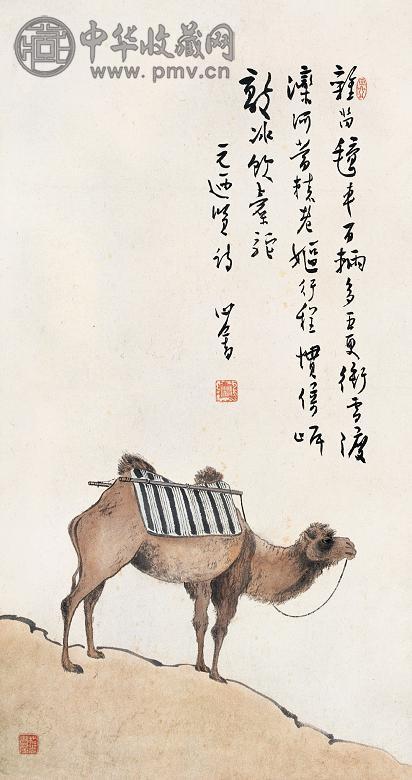 中华收藏网
www.pmv.cn
雜沓氊車百輛多五更衝雪渡
灤河當轅老嫗行程慣倚岸
敲冰飲橐駝
元迺賢詩 心畬